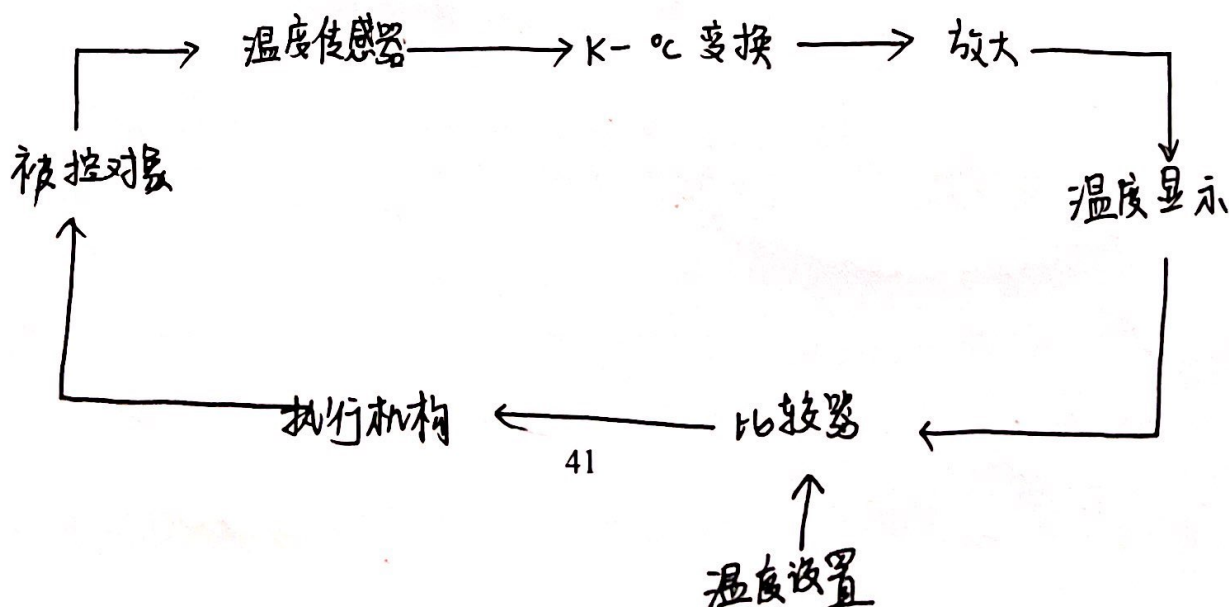 温度传感器 K-℃ 变换 放大
被控对象
温度显示
执行机构 比较器
41
温度设置